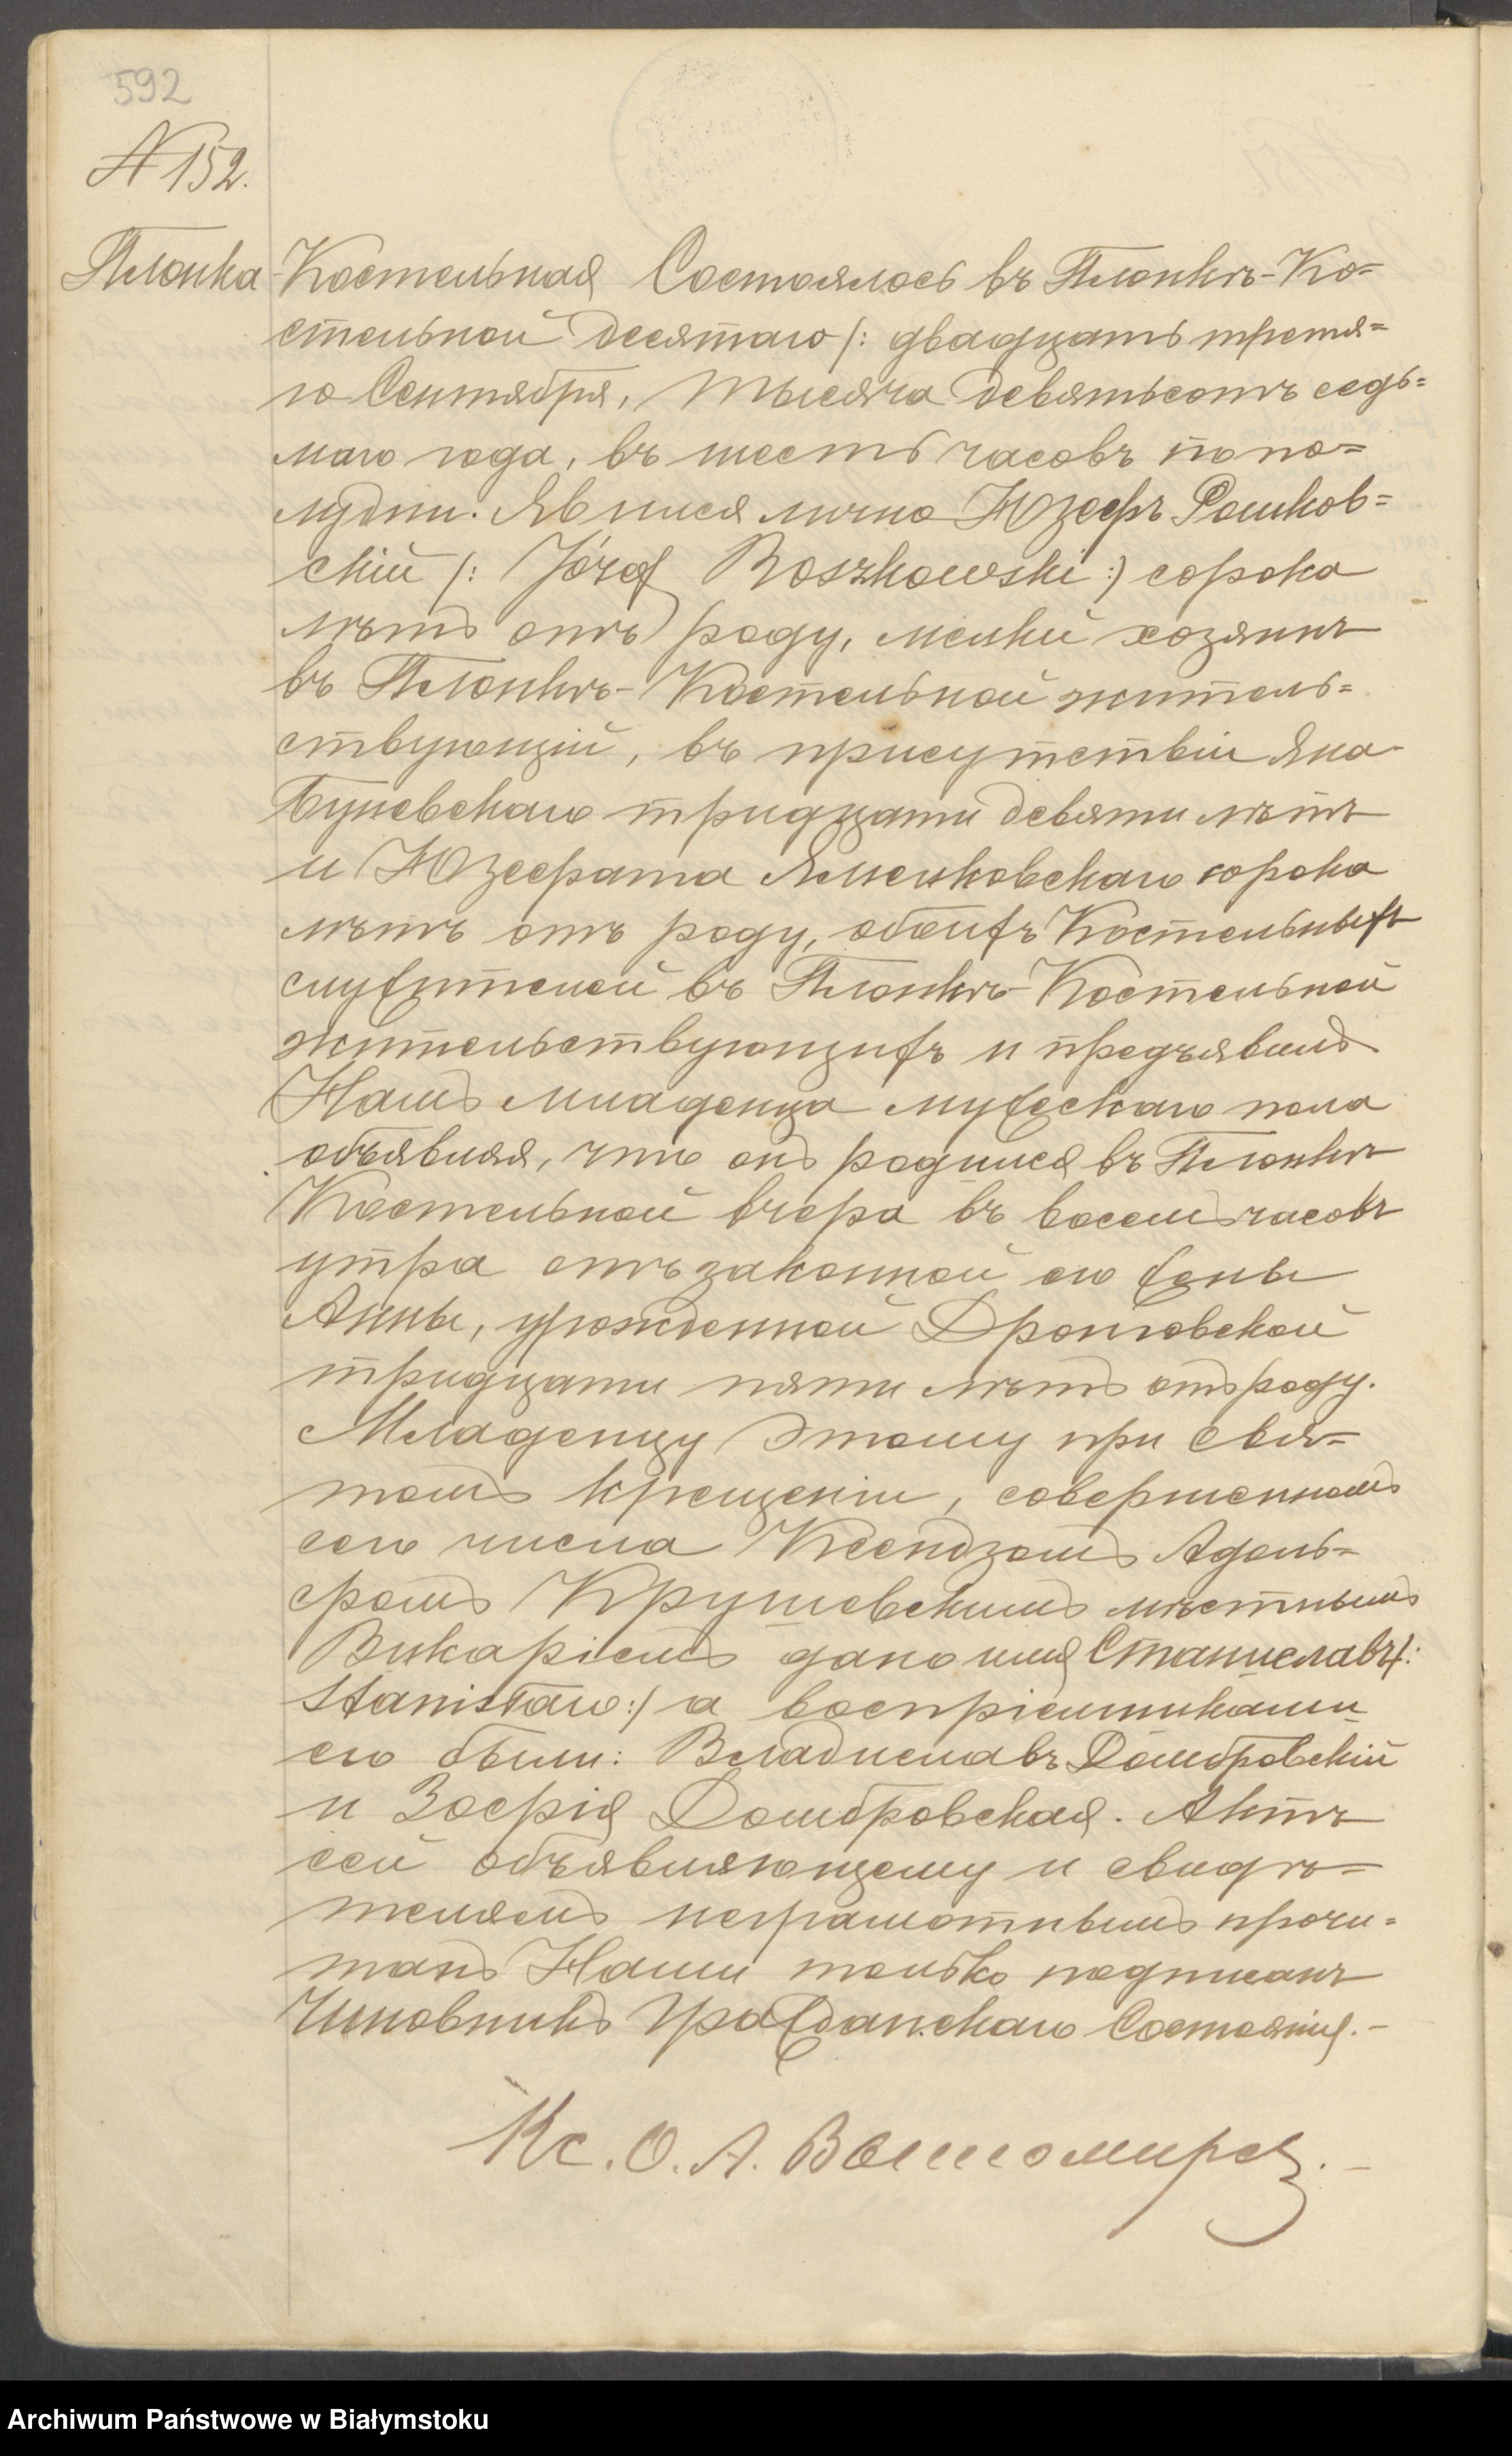 592
N 152.
Плонка-Костельная Состоялось въ Плонкѣ-Ко=
стельной десятаго /: двадцать третья=
го Сентября, тысяча девятьсотъ седь=
маго года, въ шесть часовъ по по=
лудни. Явился лично Юзефъ Рошков=
скій /: Józef Roszkowski :/ сорока
лѣтъ отъ роду, мелкій хозяинъ
въ Плонкѣ-Костельной житель=
ствующій, въ присутствіи Яна
тридцати девяти лѣтъ
и Юзефата сорока
лѣтъ отъ роду, обоихъ Костельныхъ
служителей въ Плонкѣ-Костельной
жительствующихъ и предъявилъ
Намъ младенца мужескаго пола
объявляя, что онъ родился въ Плонкѣ
Костельной вчера въ восемь часовъ
утра отъ законной его жены
Анны, урожденной
тридцати пяти лѣтъ отъ роду.
Младенцу Этому при Свя=
томъ крещеніи, совершенномъ
сего числа Ксендзомъ Адоль=
фомъ Крушевскимъ мѣстнымъ
Викаріемъ дано имя Станиславъ/:
Stanisław:/ а воспріемниками
его были: Владиславъ Домбровскій
и Зофія Домбровская. Актъ
сей объявляющему и свидѣ=
телямъ неграмотнымъ прочи=
танъ Нами только подписанъ
Чиновникъ Гражданскаго Состоянія.-
Кс. О. А.
Archiwum Państwowe w Białymstoku